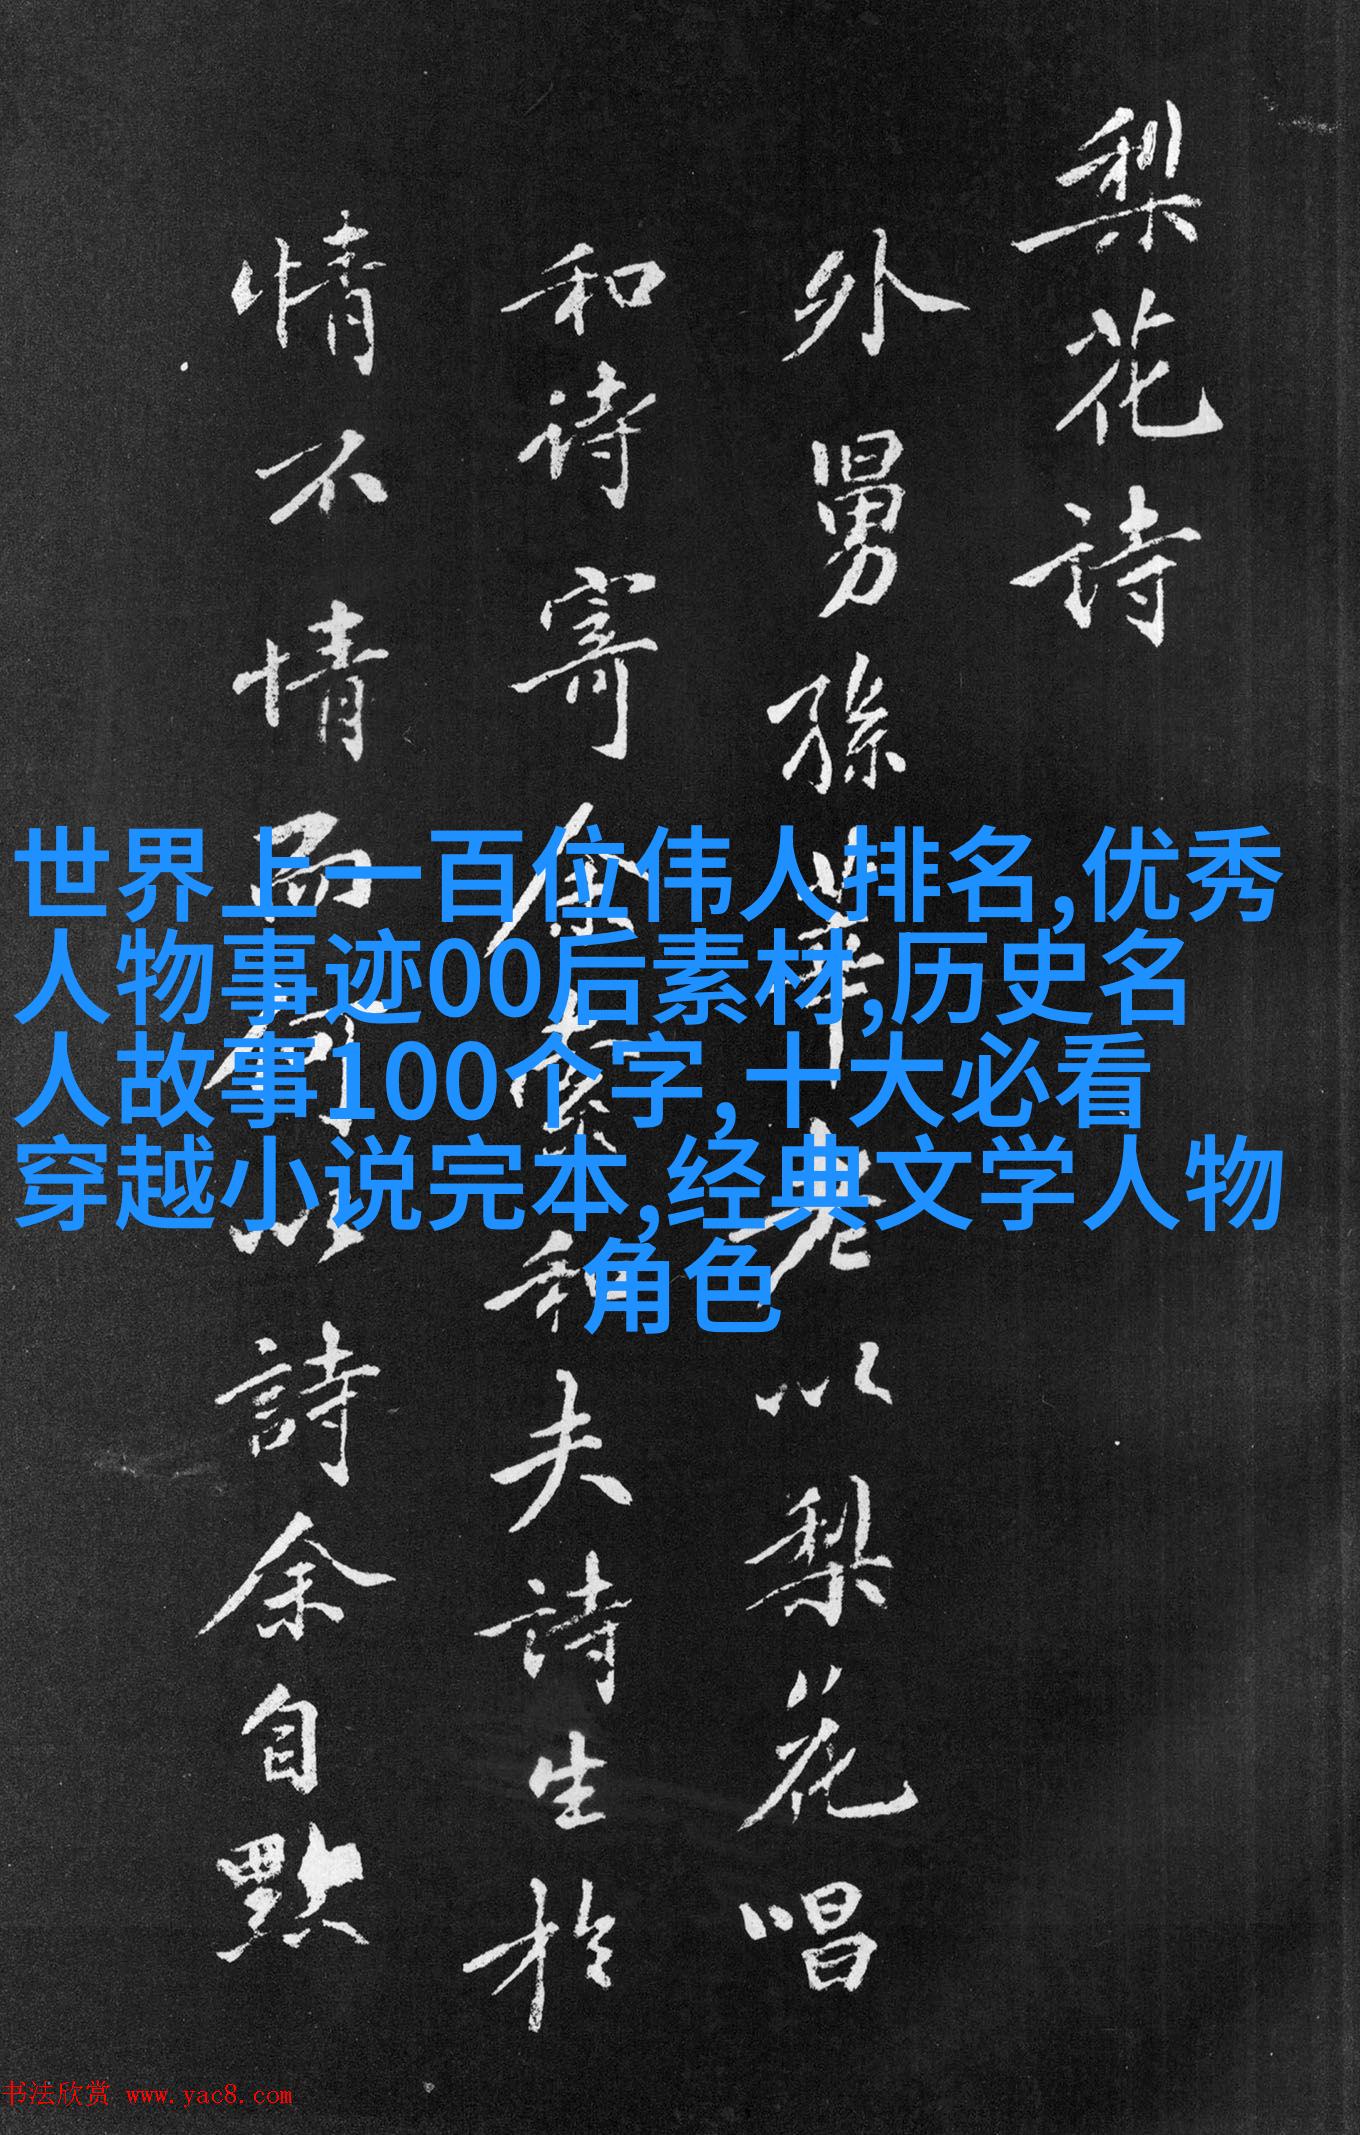 梨花詩
外舅孫莘老以梨花唱
和诗寄余索和夫詩生於
情不情而何以詩余自黙
世界上一百位伟人排名,优秀
人物事迹00后素材,历史名
人故事100个字,十大必看
穿越小说完本,经典文学人物
角色
书法欣赏 www.yac8.com